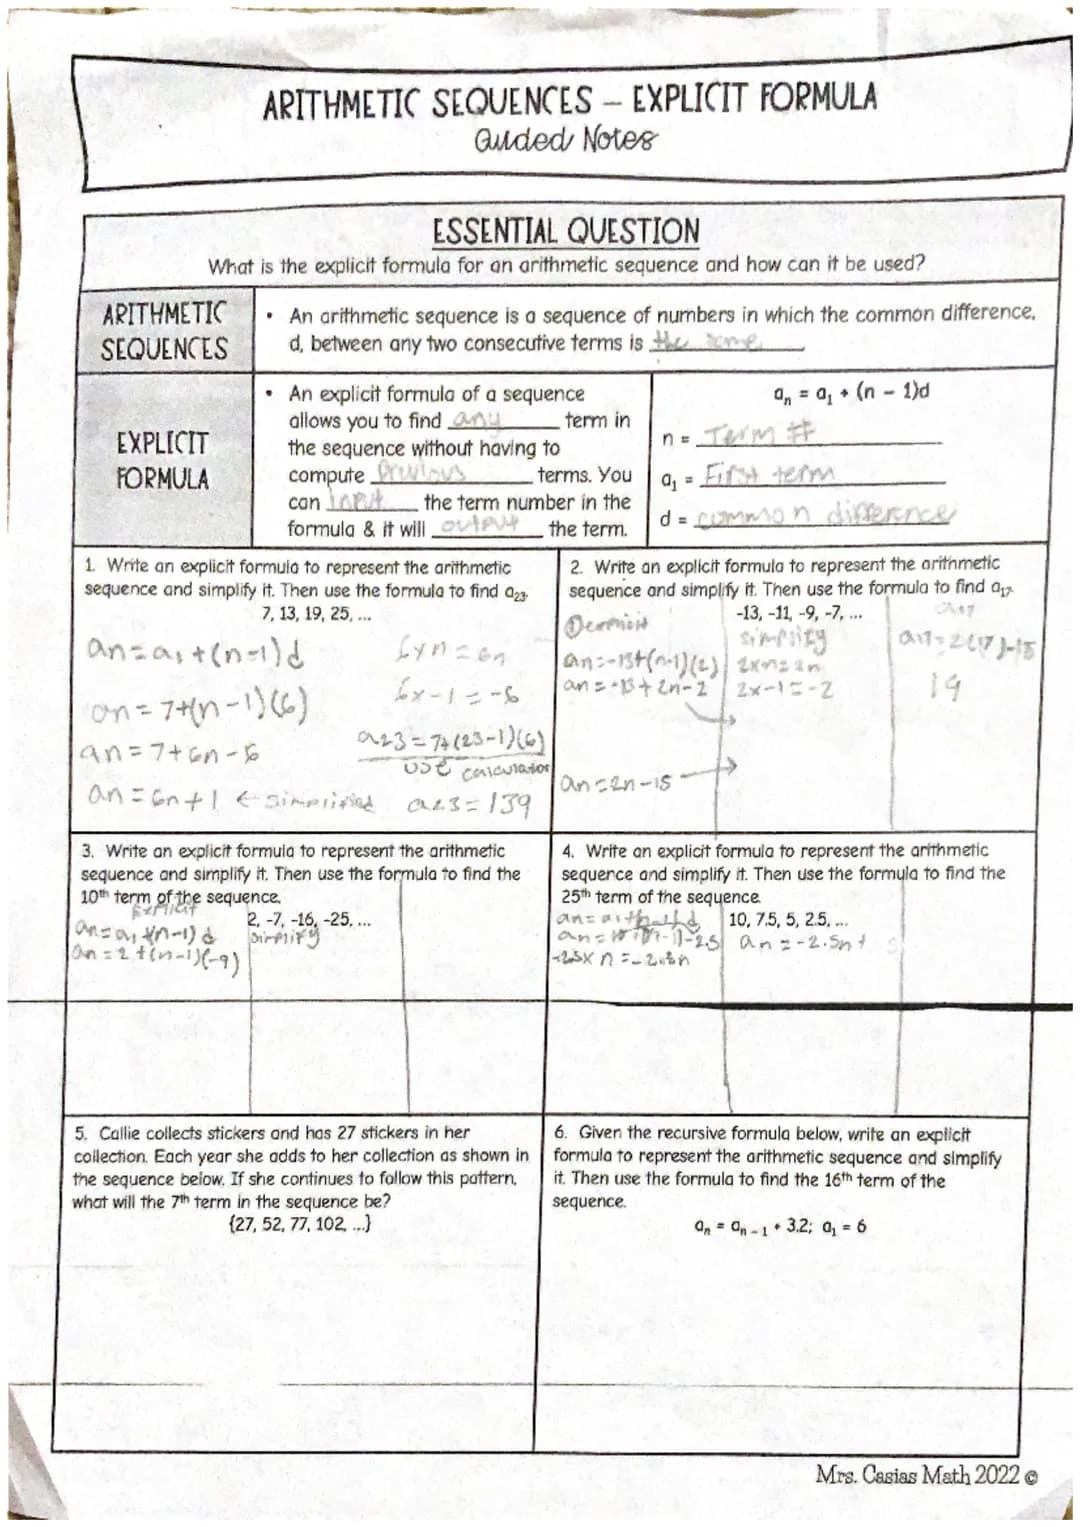 ARITHMETIC SEQUENCES – EXPLICIT FORMULA
Guided Notes
ESSENTIAL QUESTION
What is the explicit formula for an arithmetic sequence and how can it be used?
ARITHMETIC
SEQUENCES
• An arithmetic sequence is a sequence of numbers in which the common difference,
d, between any two consecutive terms is the same
EXPLICIT
FORMULA
• An explicit formula of a sequence
allows you to find any term in
the sequence without having to
compute previous terms. You
can input the term number in the
formula & it will output the term.
aₙ = a₁ + (n – 1)d
n = Term #
a₁ = First term
d = common difference
1. Write an explicit formula to represent the arithmetic
sequence and simplify it. Then use the formula to find a₂₃.
7, 13, 19, 25, ...
an = a₁ + (n-1)d
6xn = 6n
an = 7+(n-1)(6)
6x-1 = -6
an = 7+6n-6
a23 = 7+(23-1)(6)
use calculator
an = 6n+1 ← simplified
a23 = 139
2. Write an explicit formula to represent the arithmetic
sequence and simplify it. Then use the formula to find a₁₇.
-13, -11, -9, -7, ...
an=-13+(n-1)(2)
an = -13+2n-2
an=2n-15
simplify
2xn=2n
2x-1=-2
a17
a17=2(17)-15
19
3. Write an explicit formula to represent the arithmetic
sequence and simplify it. Then use the formula to find the
10th term of the sequence.
2, -7, -16, -25, ...
Explicit
an=a₁+(n-1)d
an=2+(n-1)(-9)
simplify
4. Write an explicit formula to represent the arithmetic
sequence and simplify it. Then use the formula to find the
25th term of the sequence.
10, 7.5, 5, 2.5, ...
an=a1+(n-1)d
an=10+(n-1)-2.5
-2.5x n =-2.5n
an=-2.5n+
5. Callie collects stickers and has 27 stickers in her
collection. Each year she adds to her collection as shown in
the sequence below. If she continues to follow this pattern,
what will the 7th term in the sequence be?
{27, 52, 77, 102, ...}
6. Given the recursive formula below, write an explicit
formula to represent the arithmetic sequence and simplify
it. Then use the formula to find the 16th term of the
sequence.
aₙ = aₙ₋₁ + 3.2; a₁ = 6
Mrs. Casias Math 2022 ©